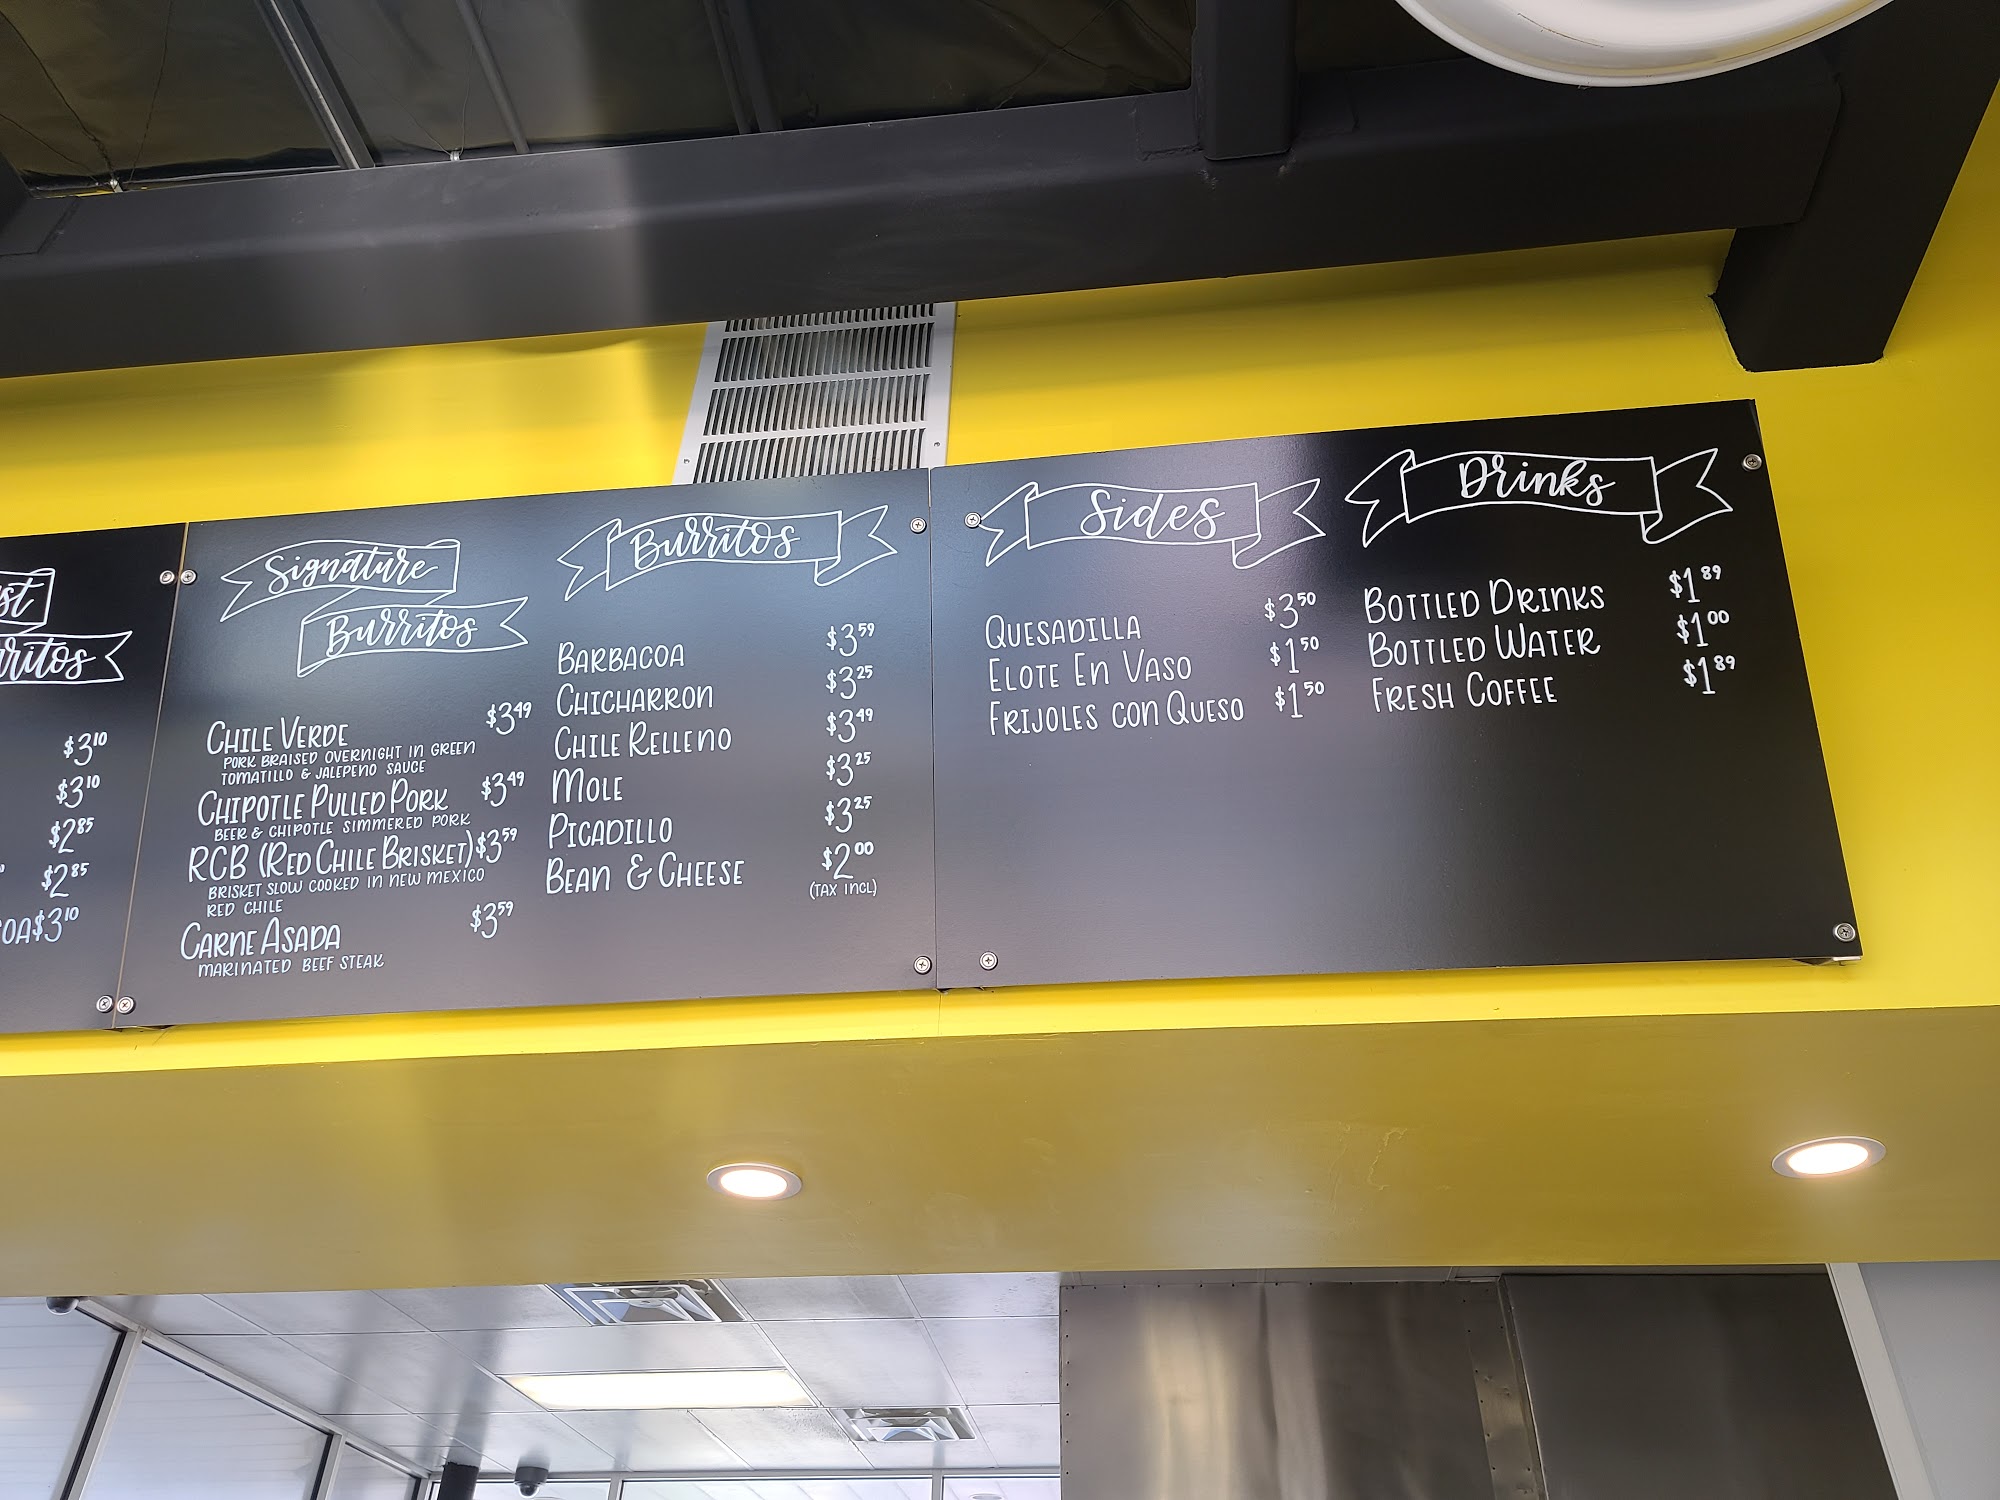 st
rritos
$3¹⁰
$3¹⁰
$2⁸⁵
$2⁸⁵
OA $3¹⁰
Signature
Burritos
CHILE VERDE $3⁴⁹
PORK BRAISED OVERNIGHT IN GREEN
TOMATILLO & JALEPENO SAUCE
CHIPOTLE PULLED PORK $3⁴⁹
BEER & CHIPOTLE SIMMERED PORK
RCB (RED CHILE BRISKET) $3⁵⁹
BRISKET SLOW COOKED IN NEW MEXICO
RED CHILE
CARNE ASADA $3⁵⁹
MARINATED BEEF STEAK
Burritos
BARBACOA $3⁵⁹
CHICHARRON $3²⁵
CHILE RELLENO $3⁴⁹
MOLE $3²⁵
PICADILLO $3²⁵
BEAN & CHEESE $2⁰⁰
(TAX INCL)
Sides
QUESADILLA $3⁵⁰
ELOTE EN VASO $1⁵⁰
FRIJOLES CON QUESO $1⁵⁰
Drinks
BOTTLED DRINKS $1⁸⁹
BOTTLED WATER $1⁰⁰
FRESH COFFEE $1⁸⁹